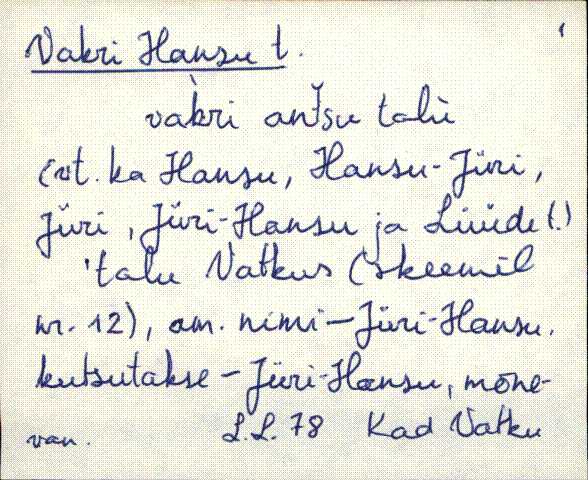 Vakri Hansu t.
vàkri anťšu talù
(vt. ka Hansu, Hansu-Jüri,
Jüri, Jüri-Hansu ja Liiüde t.)
'talu Vatkus (skeemil
nr. 12), am. nimi – Jüri-Hansu.
kutsutakse – Jüri-Hansu, mõne-
van. L.L. 78 Kad Vatku